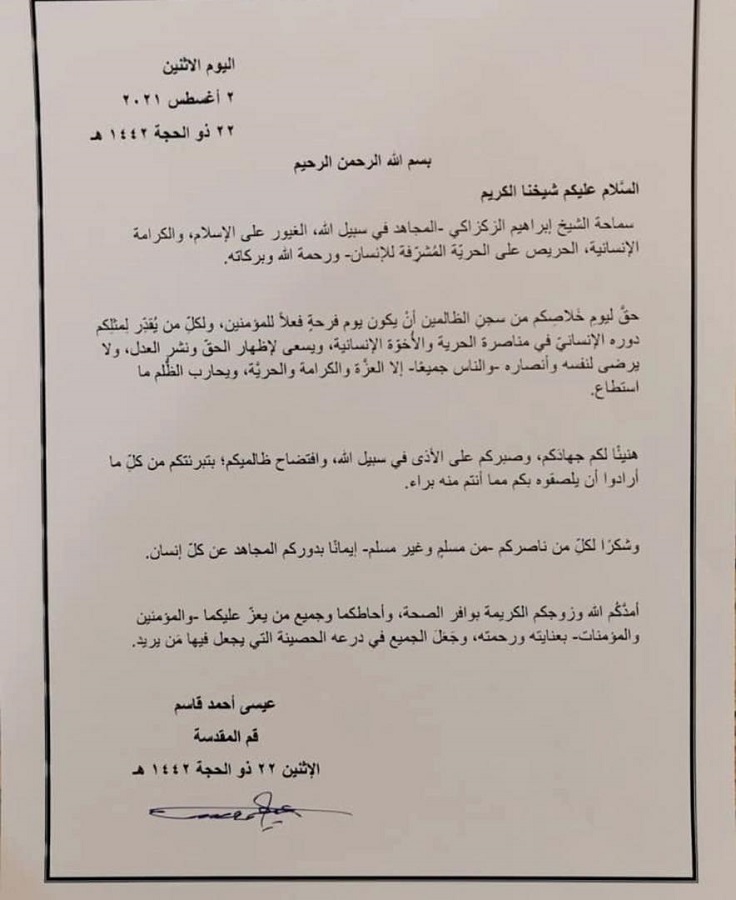 اليوم الاثنين
٢ أغسطس ٢٠٢١
٢٢ ذو الحجة ١٤٤٢ هـ
بسم الله الرحمن الرحيم
السَّلام عليكم شيخنا الكريم
سماحة الشيخ إبراهيم الزكزاكي -المجاهد في سبيل الله، الغيور على الإسلام، والكرامة
الإنسانية، الحريص على الحريّة المُشرِّفة للإنسان- ورحمة الله وبركاته.
حقَّ ليومِ خَلاصِكم من سجنِ الظالمين أنْ يكون يوم فرحةٍ فعلاً للمؤمنين، ولكلِّ من يُقدِّر لِمثلِكم
دوره الإنسانيّ في مناصرة الحرية والأُخوّة الإنسانية، ويسعى لإظهار الحقّ ونشرِ العدل، ولا
يرضى لنفسه وأنصاره -والناس جميعًا- إلا العزَّة والكرامة والحريَّة، ويحارب الظُّلم ما
استطاع.
هنيئًا لكم جهادكم، وصبركم على الأذى في سبيل الله، وافتضاح ظالميكم؛ بتبرئتكم من كلِّ ما
أرادوا أن يلصقوه بكم مما أنتم منه براء.
وشكرًا لكلِّ من ناصركم -من مسلمٍ وغير مسلم- إيمانًا بدوركم المجاهد عن كلّ إنسان.
أمدَّكُم الله وزوجكم الكريمة بوافر الصحة، وأحاطكما وجميع من يعزّ عليكما -والمؤمنين
والمؤمنات- بعنايته ورحمته، وجَعَلَ الجميع في درعه الحصينة التي يجعل فيها مَن يريد.
عيسى أحمد قاسم
قم المقدسة
الإثنين ٢٢ ذو الحجة ١٤٤٢ هـ